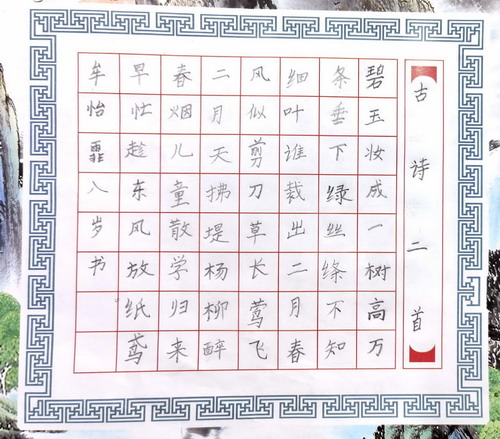 古诗二首
碧玉妆成一树高万
条垂下绿丝绦不知
细叶谁裁出二月春
风似剪刀草长莺飞
二月天拂堤杨柳醉
春烟儿童散学归来
早忙趁东风放纸鸢
牟怡霏八岁书